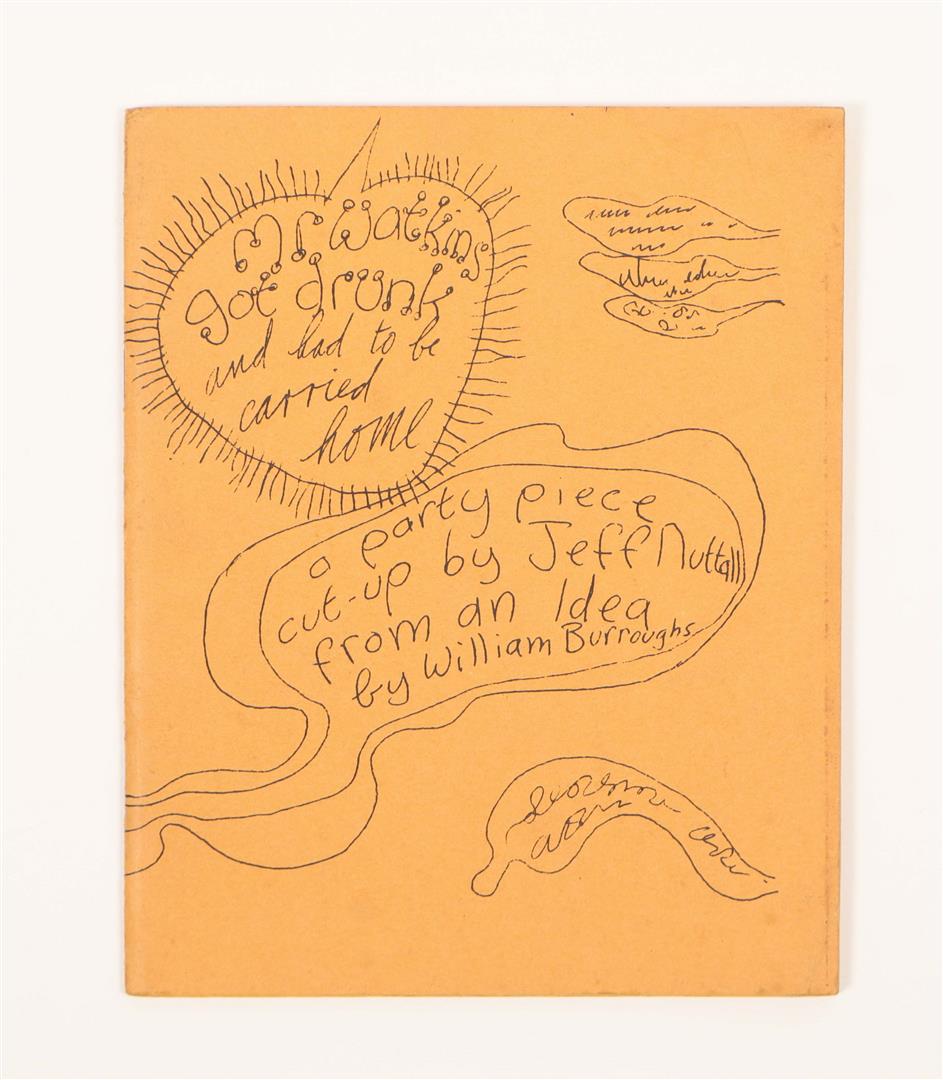 Mr Watkins
got drunk
and had to be
carried
home
a party piece
cut-up by Jeff Nuttall
from an Idea
by William Burroughs